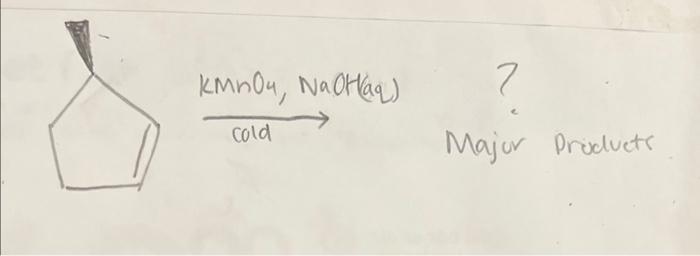 KMnO4, NaOH(aq)
cold
?
Major Products